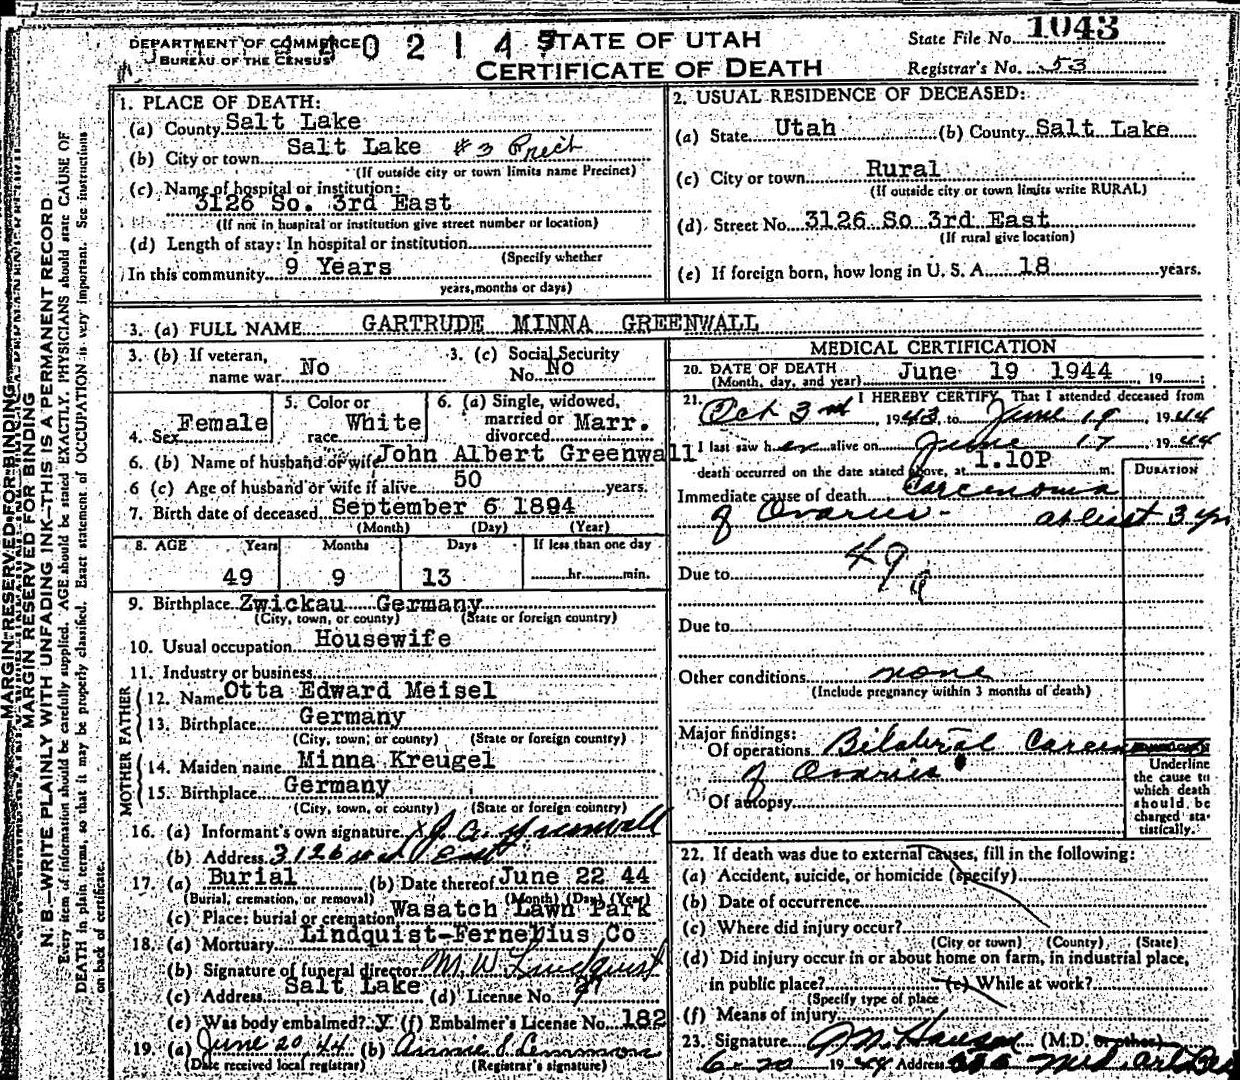 DEPARTMENT OF COMMERCE
BUREAU OF THE CENSUS
4402145
STATE OF UTAH
CERTIFICATE OF DEATH
State File No. 1043
Registrar's No. 53
MARGIN RESERVED FOR BINDING
MARGIN RESERVED FOR BINDING
N. B.—WRITE PLAINLY WITH UNFADING INK—THIS IS A PERMANENT RECORD
Every item of information should be carefully supplied. AGE should be stated EXACTLY. PHYSICIANS should state CAUSE OF
DEATH in plain terms, so that it may be properly classified. Exact statement of OCCUPATION is very important. See instructions
on back of certificate.
1. PLACE OF DEATH:
(a) County Salt Lake
(b) City or town Salt Lake #3 Prect
(If outside city or town limits name Precinct)
(c) Name of hospital or institution:
3126 So. 3rd East
(If not in hospital or institution give street number or location)
(d) Length of stay: In hospital or institution
(Specify whether
In this community 9 Years
years, months or days)
2. USUAL RESIDENCE OF DECEASED:
(a) State Utah (b) County Salt Lake
(c) City or town Rural
(If outside city or town limits write RURAL)
(d) Street No. 3126 So 3rd East
(If rural give location)
(e) If foreign born, how long in U. S. A. 18 years.
3. (a) FULL NAME GARTRUDE MINNA GREENWALL
3. (b) If veteran,
name war No
3. (c) Social Security
No. No
4. Sex Female
5. Color or
race White
6. (a) Single, widowed,
married or
divorced Marr.
6. (b) Name of husband or wife John Albert Greenwall
6 (c) Age of husband or wife if alive 50 years.
7. Birth date of deceased September 6 1894
(Month) (Day) (Year)
8. AGE Years Months Days If less than one day
49 9 13 hr. min.
9. Birthplace Zwickau Germany
(City, town, or county) (State or foreign country)
10. Usual occupation Housewife
11. Industry or business
FATHER
12. Name Otta Edward Meisel
13. Birthplace Germany
(City, town, or county) (State or foreign country)
MOTHER
14. Maiden name Minna Kreugel
15. Birthplace Germany
(City, town, or county) (State or foreign country)
16. (a) Informant's own signature X J. A. Greenwall
(b) Address 3126 East
17. (a) Burial (b) Date thereof June 22 44
(Burial, cremation, or removal) (Month) (Day) (Year)
(c) Place: burial or cremation Wasatch Lawn Park
18. (a) Mortuary Lindquist-Fernelius Co
(b) Signature of funeral director M. W. Lindquist
(c) Address Salt Lake (d) License No.
(e) Was body embalmed? y (f) Embalmer's License No. 182
19. (a) June 20 44 (b)
(Date received local registrar) (Registrar's signature)
MEDICAL CERTIFICATION
20. DATE OF DEATH
(Month, day, and year) June 19 1944 19
21. I HEREBY CERTIFY, That I attended deceased from
Oct 3rd 1943 to June 19 1944
I last saw her alive on June 17 1944
death occurred on the date stated above, at 1.10P m.
DURATION
Immediate cause of death Carcenoma
of Ovaries - at least 3 yrs
Due to 49a
Due to
Other conditions none
(Include pregnancy within 3 months of death)
Major findings:
Of operations Bilateral Carcenoma
of Ovaries
Of autopsy
Underline
the cause to
which death
should be
charged sta-
tistically.
22. If death was due to external causes, fill in the following:
(a) Accident, suicide, or homicide (specify)
(b) Date of occurrence
(c) Where did injury occur?
(City or town) (County) (State)
(d) Did injury occur in or about home on farm, in industrial place,
in public place? (e) While at work?
(Specify type of place
(f) Means of injury
23. Signature (M.D. or other)
6-20 1944 Address Med. Arts